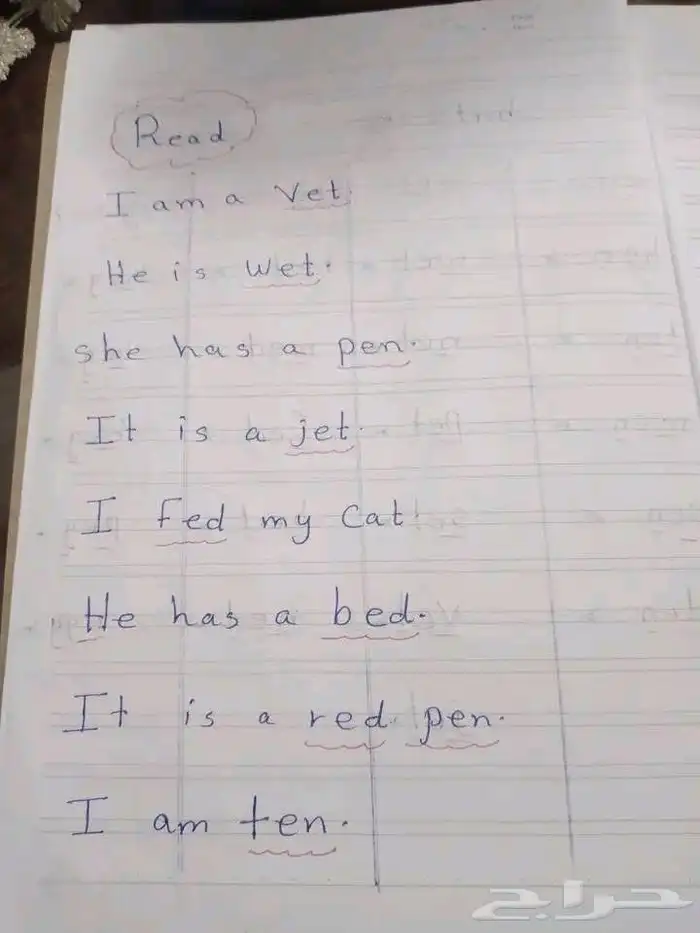 Read
I am a Vet.
He is wet.
she has a pen.
It is a jet.
I fed my cat.
He has a bed.
It is a red pen.
I am ten.
حراج